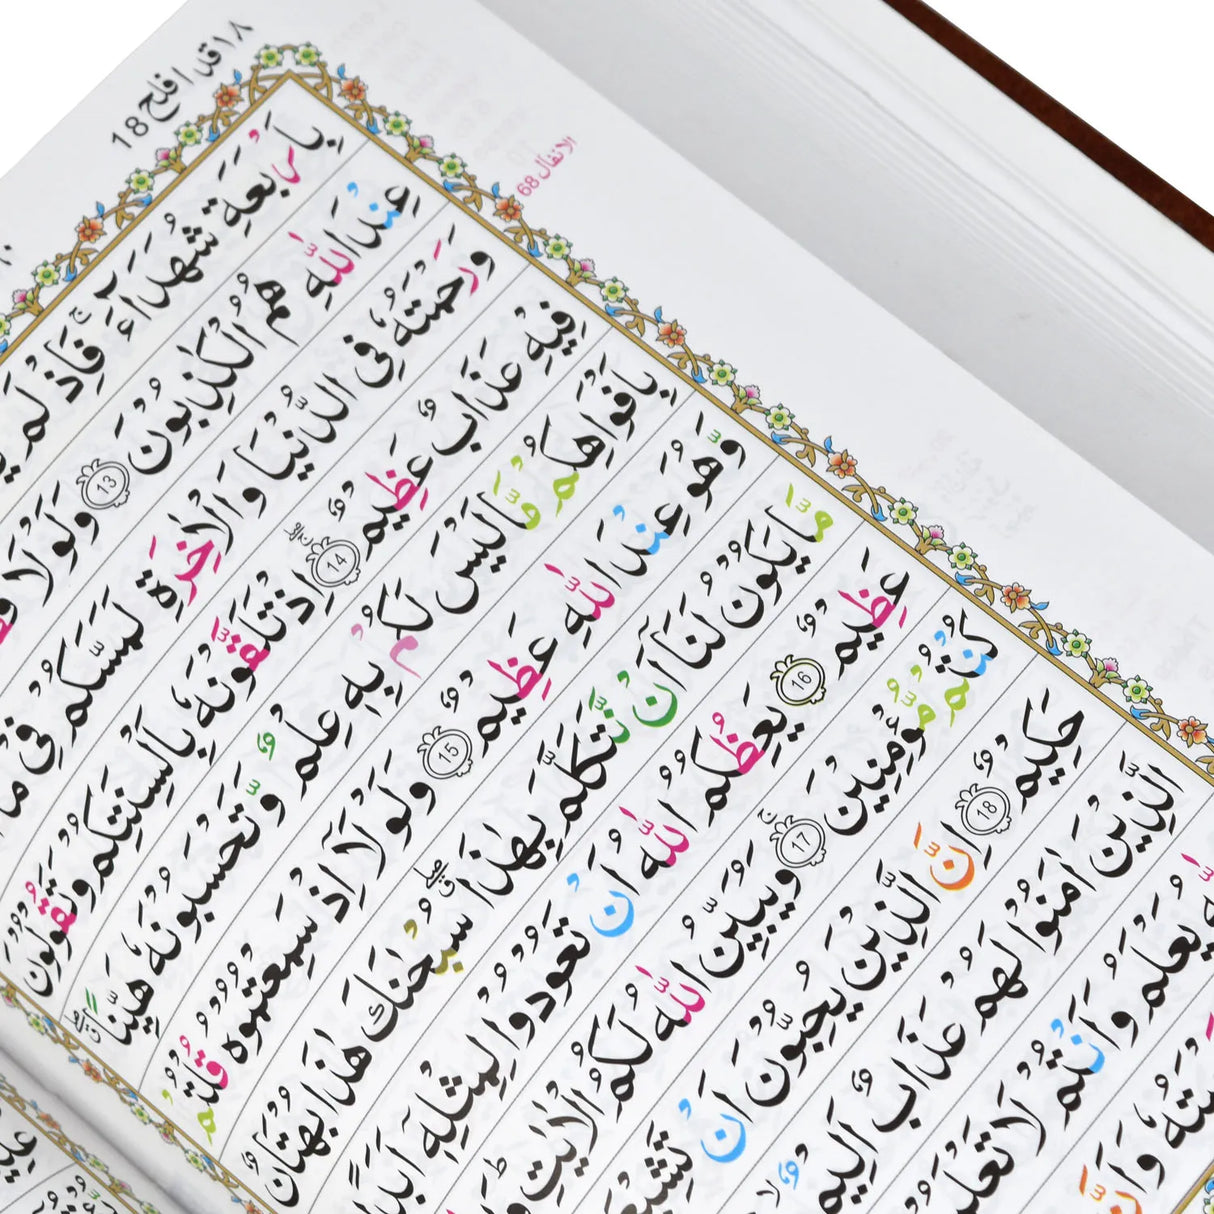 ١٨ قد افلح 18
الانفال 68
بِاَرْبَعَةِ شُهَدَآءَ ۚ فَاِذْ لَمْ
عِنْدَ اللّٰهِ هُمُ الْكٰذِبُوْنَ 13 وَلَوْلَا
وَرَحْمَتُهٗ فِى الدُّنْيَا وَالْاٰخِرَةِ لَمَسَّكُمْ فِىْ مَاۤ
فِيْهِ عَذَابٌ عَظِيْمٌ 14 اِذْ تَلَقَّوْنَهٗ بِاَلْسِنَتِكُمْ وَتَقُوْلُوْنَ
بِاَفْوَاهِكُمْ مَّا لَيْسَ لَكُمْ بِهٖ عِلْمٌ وَّتَحْسَبُوْنَهٗ هَيِّنًا
وَّهُوَ عِنْدَ اللّٰهِ عَظِيْمٌ 15 وَلَوْلَاۤ اِذْ سَمِعْتُمُوْهُ قُلْتُمْ
مَّا يَكُوْنُ لَنَاۤ اَنْ نَّتَكَلَّمَ بِهٰذَا سُبْحٰنَكَ هٰذَا بُهْتَانٌ
عَظِيْمٌ 16 يَعِظُكُمُ اللّٰهُ اَنْ تَعُوْدُوْا لِمِثْلِهٖۤ اَبَدًا
كُنْتُمْ مُّؤْمِنِيْنَ 17 وَيُبَيِّنُ اللّٰهُ لَكُمُ الْاٰيٰتِ
حَكِيْمٌ 18 اِنَّ الَّذِيْنَ يُحِبُّوْنَ اَنْ تَشِيْعَ
الَّذِيْنَ اٰمَنُوْا لَهُمْ عَذَابٌ اَلِيْمٌ
يَعْلَمُ وَاَنْتُمْ لَا
وَاَنَّ